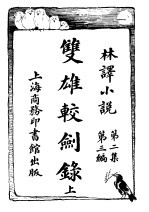 林譯小説
第二集
第三編
雙雄較劍錄
上
上海商務印書館出版